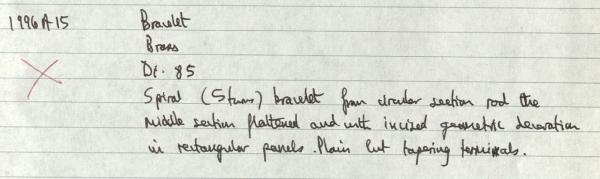 1996 A 15 Bracelet
Brass
Di. 85
Spiral (5 turns) bracelet from circular section rod the
middle section flattened and with incized geometric decoration
in rectangular panels. Plain but tapering terminals.